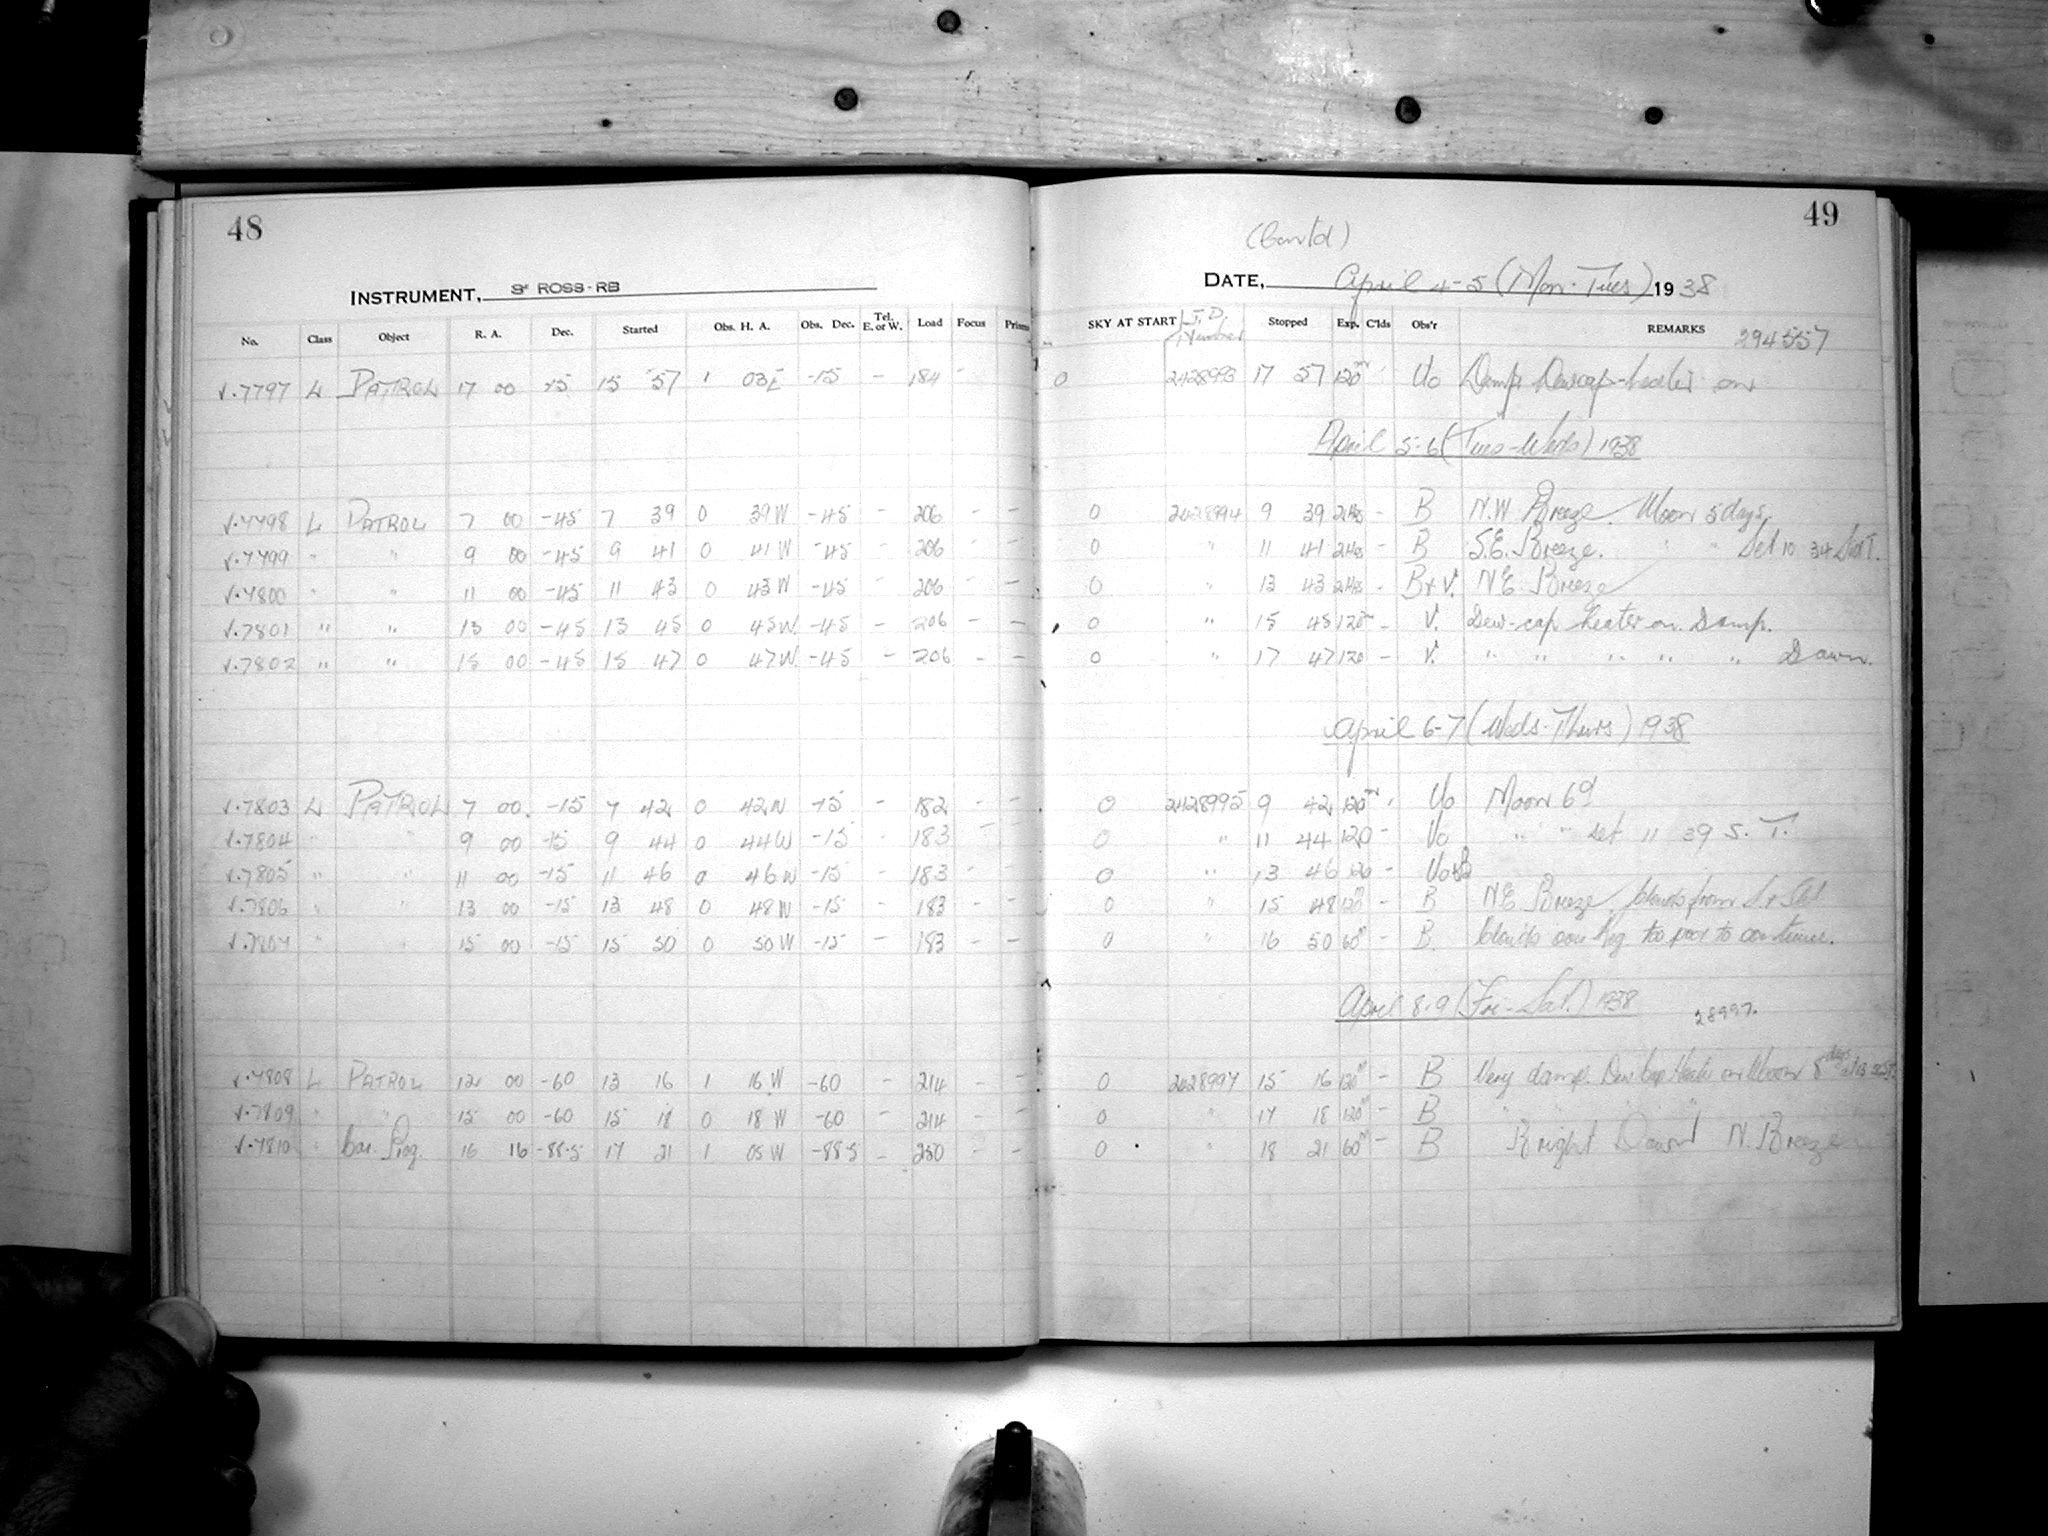 48
INSTRUMENT, 3" ROSS-RB
No. Class Object R. A. Dec. Started Obs. H. A. Obs. Dec. Tel. E. or W. Load Focus Prisms
7797 L PATROL 17 00 -15 15 57 1 03E -15 - 184 -
7798 L PATROL 7 00 -45 7 39 0 39W -45 - 206 - -
7799 " " 9 00 -45 9 41 0 41W -45 - 206 - -
7800 " " 11 00 -45 11 43 0 43W -45 - 206 - -
7801 " " 13 00 -45 13 45 0 45W -45 - 206 - -
7802 " " 15 00 -45 15 47 0 47W -45 - 206 - -
7803 L PATROL 7 00 -15 7 42 0 42W -15 - 182 - -
7804 " " 9 00 -15 9 44 0 44W -15 - 183 - -
7805 " " 11 00 -15 11 46 0 46W -15 - 183 -
7806 " " 13 00 -15 13 48 0 48W -15 - 183 - -
7807 " " 15 00 -15 15 50 0 50W -15 - 183 - -
7808 L PATROL 12 00 -60 13 16 1 16W -60 - 214 - -
7809 " " 15 00 -60 15 18 0 18W -60 - 214 - -
7810 " 16 16 -88.5 17 21 1 05W -88.5 - 250 - -
49
(Contd)
DATE, April 4-5 (Mon-Tues) 1938
SKY AT START J.D. Number Stopped Exp. C'lds Obs'r REMARKS 294557
0 2428993 17 57 120m Uo Damp Dewcap-heater on
April 5-6 (Tues-Weds) 1938
0 2428994 9 39 2Hrs - B N.W Breeze. Moon 5 days.
0 " 11 41 2Hrs - B S.E. Breeze. " " Set 10 34 Sid T.
0 " 13 43 2Hrs - B+V. N E Breeze
0 " 15 45 120m - V. Dew-cap heater on. Damp.
0 " 17 47 120 - V. " " " " " Dawn.
April 6-7 (Weds-Thurs) 1938
0 2428995 9 42 120m Uo Moon 6d
0 " 11 44 120 - Uo " " set 11 29 S. T.
0 " 13 46 120 - Uo+B
0 " 15 48 120m - B N.E Breeze clouds from
0 " 16 50 60m - B. Clouds too poor to continue.
April 8-9 (Fri-Sat.) 1938 28997.
0 2428997 15 16 120m - B Very damp. Dew Cap Heater on Moon 8 days
0 " 17 18 120m - B " " "
0 " 18 21 60m - B Bright Dawn N. Breeze